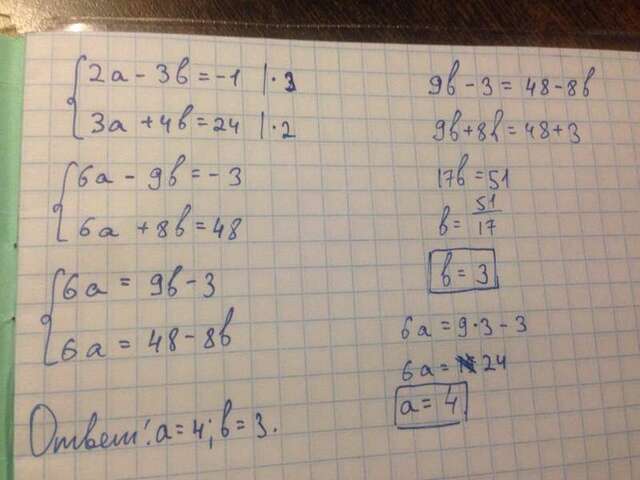 2a - 3b = -1 | · 3
3a + 4b = 24 | · 2
6a - 9b = - 3
6a + 8b = 48
6a = 9b - 3
6a = 48 - 8b
Ответ: a = 4; b = 3.
9b - 3 = 48 - 8b
9b + 8b = 48 + 3
17b = 51
b = 51/17
b = 3
6a = 9 · 3 - 3
6a = 24
a = 4